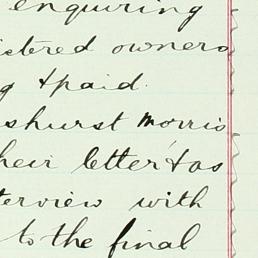 enquiring
istered owners
g & paid.
shurst Morris
heir letter & as
terview with
to the final